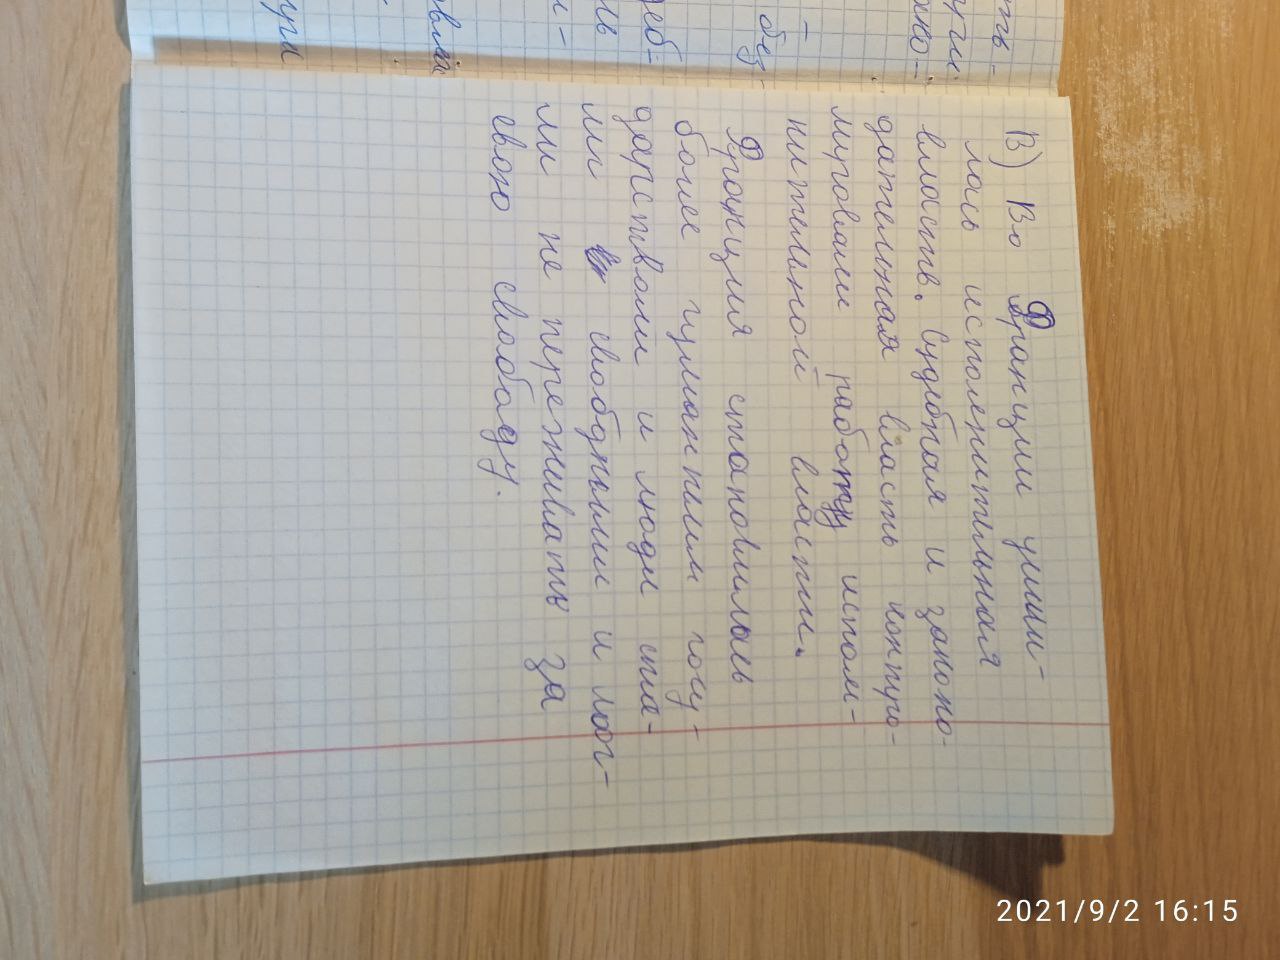 ть-
руги
ако-
-
без-
деб-
ль
и-
овла
руги
В) Во Франции упми-
лась исполнительная
власть. Судебная и законо-
дательная власть контро-
лировали работу испол-
нительной власти.
Франция становилась
более гуманным госу-
дарством и люди ста-
ли свободными и мог-
ли не переживать за
свою свободу.
2021/9/2 16:15